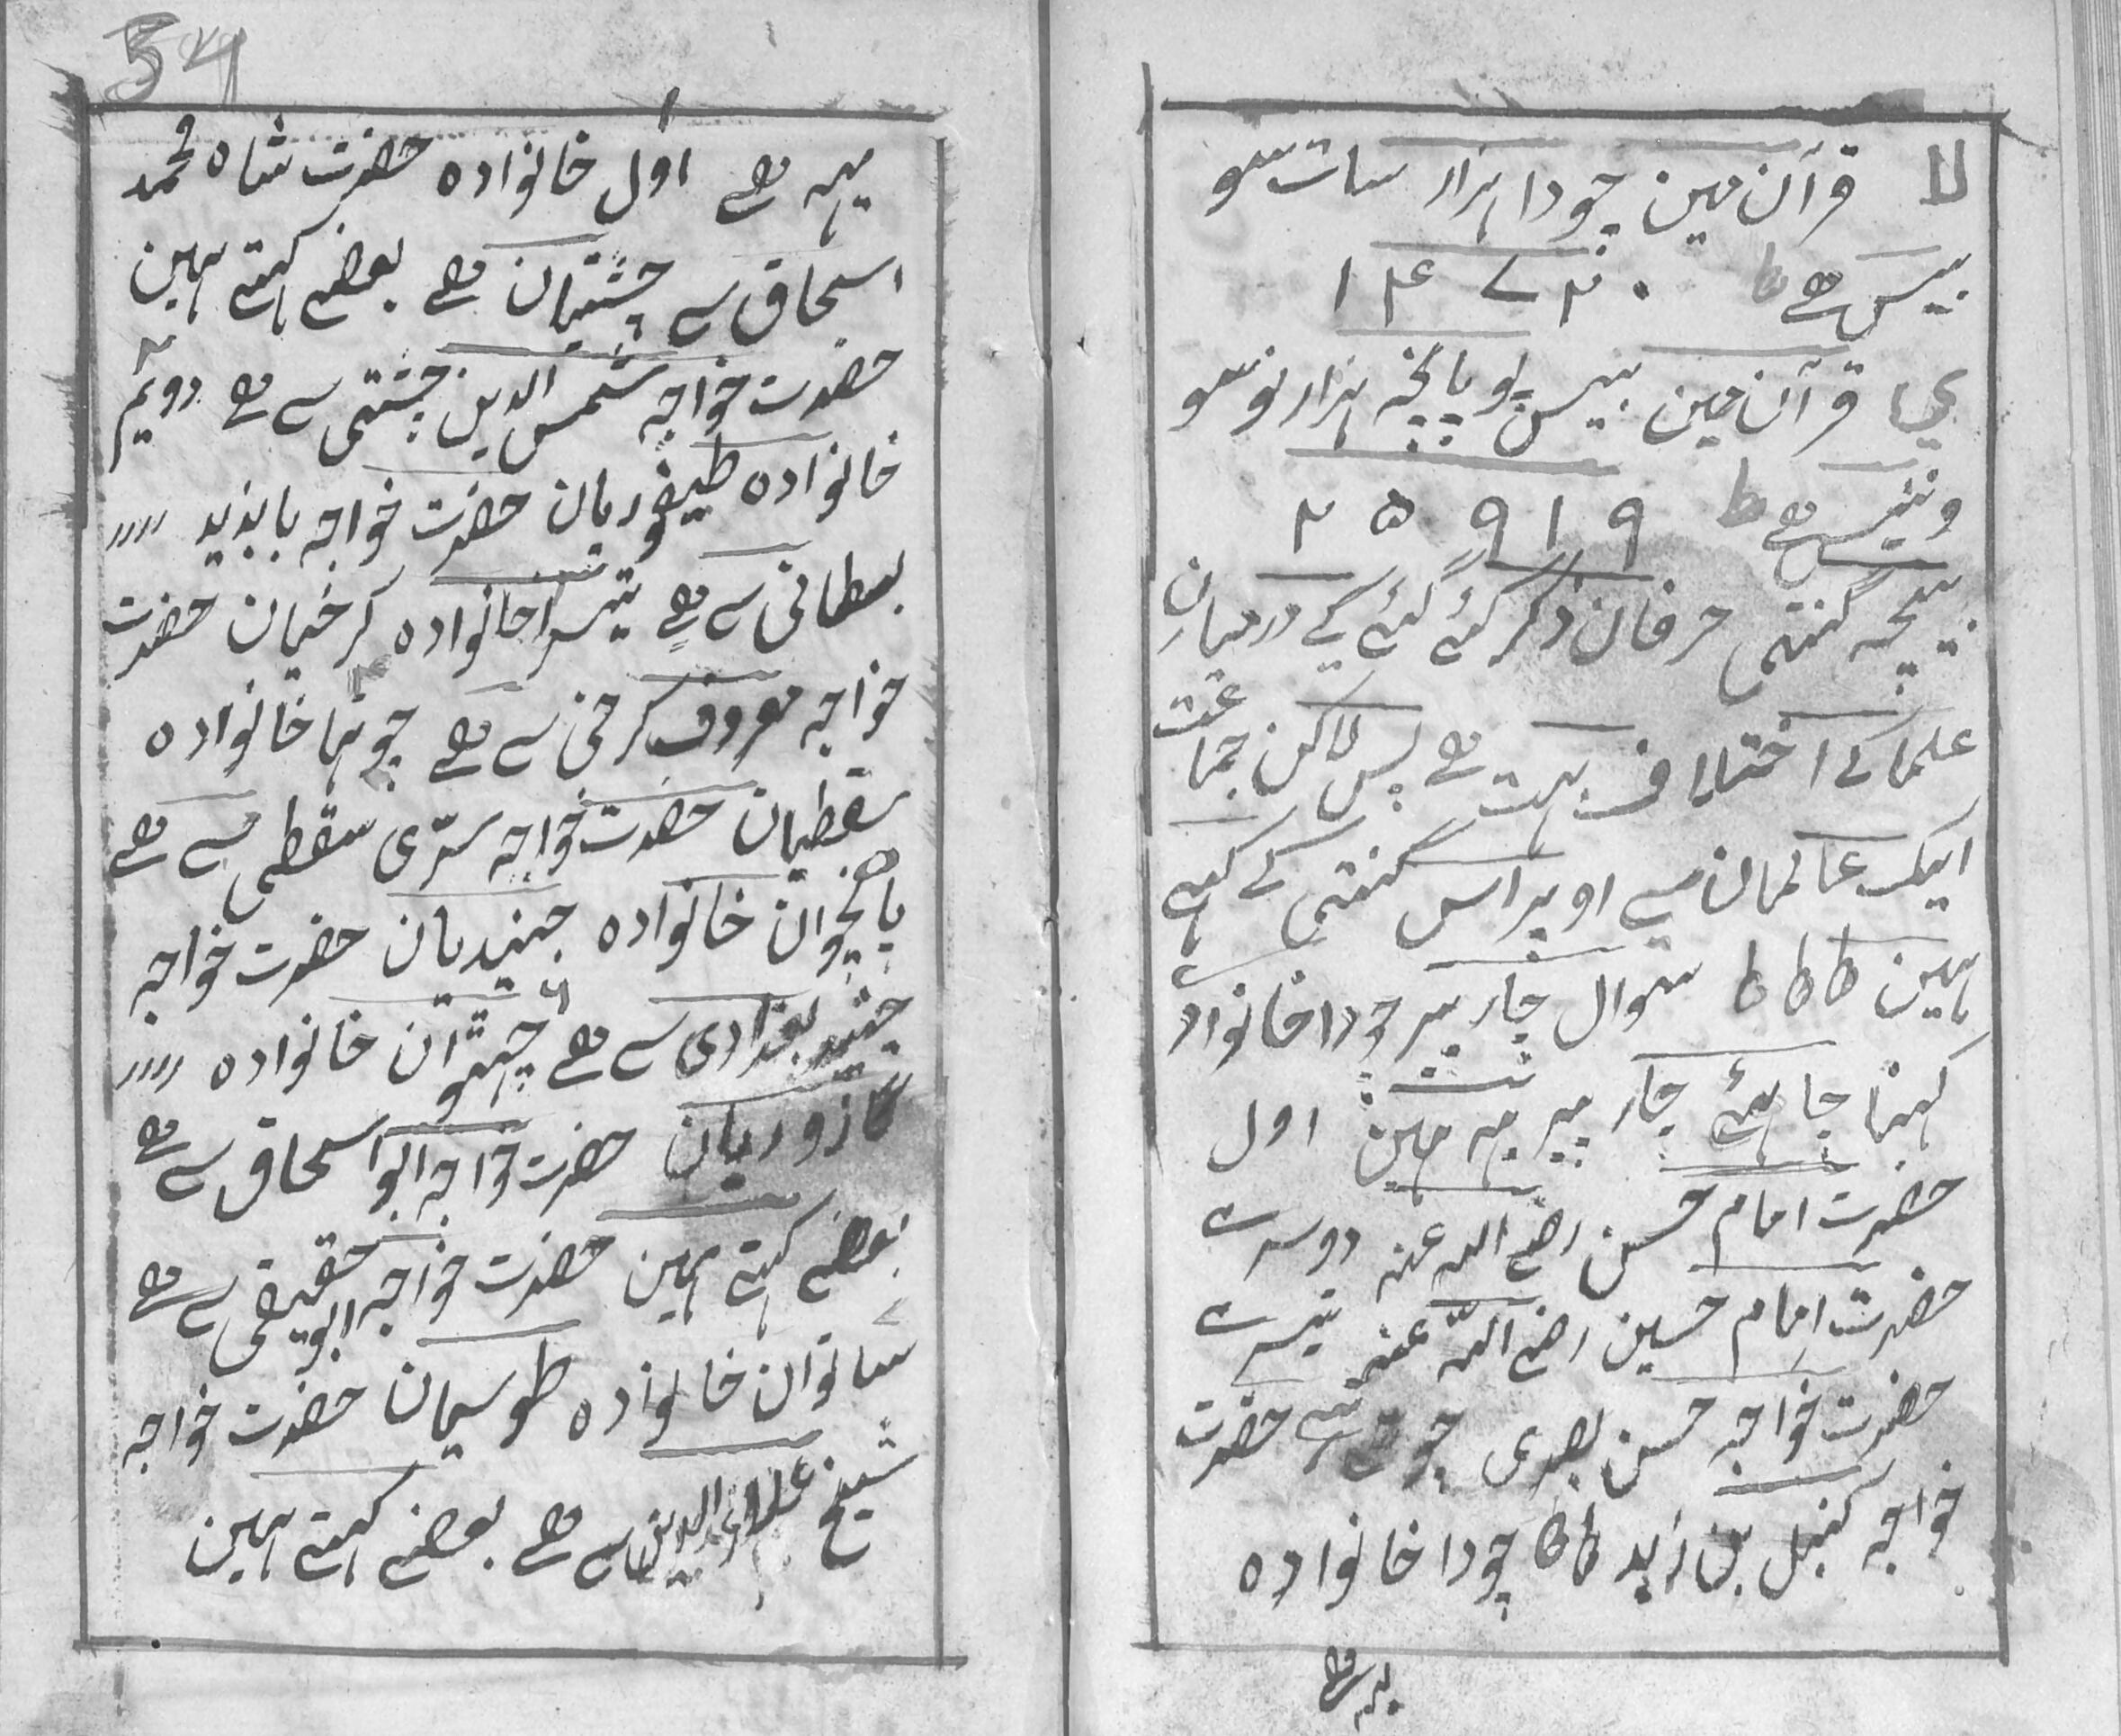 لا قرآن مین چودا ہزار سات سو
بیس ہے ط ۱۴۷۲۰
ي قرآن مین بیس پو پانچہ ہزار نو سو
ونیس ہے ط ۲۵۹۱۹
بیچہ گنتی حرفان ذکر کئے گئے کے درمیان
علما کے اختلاف بہت ہے پس لاکن جماعت
ایک عالمان سے اوپر اس گنتی کے کہے
ہین ط ط ط سوال چار پیر چودا خانوادے
کہنا چاہئے چار پیر یہ ہین اول
حضرت امام حسن رضے اللہ عنہ دوسرے
حضرت امام حسین رضے اللّہ عنہ تیسرے
حضرت خواجہ حسن بصری چوتھے حضرت
خواجہ کنبل بن زید ط ط چودا خانوادہ
یہ ہے
54
یہہ ہے اول خانوادہ حضرت شاہ محمد
اسحاق سے چشتیان ہے بعضے کہتے ہین
حضرت خواجہ شمس الدین چشتی سے ہے دویم
خانوادہ طیفوریان حضرت خواجہ بایزید
بسطامی سے ہے تیسرا خانوادہ کرخیان حضرت
خواجہ معروف کرخی سے ہے چوتہا خانوادہ
سقطیان حضرت خواجہ سرّی سقطی سے ہے
پانچوان خانوادہ جنیدیان حضرت خواجہ
جنید بغدادی سے ہے چہٹوان خانوادہ
گازوریان حضرت خواجہ ابو اسحاق سے ہے
بعضے کہتے ہین حضرت خواجہ ابو حقیقی سے ہے
ساتوان خانوادہ طوسیان حضرت خواجہ
شیخ علاو الدین سے ہے بعضے کہتے ہین